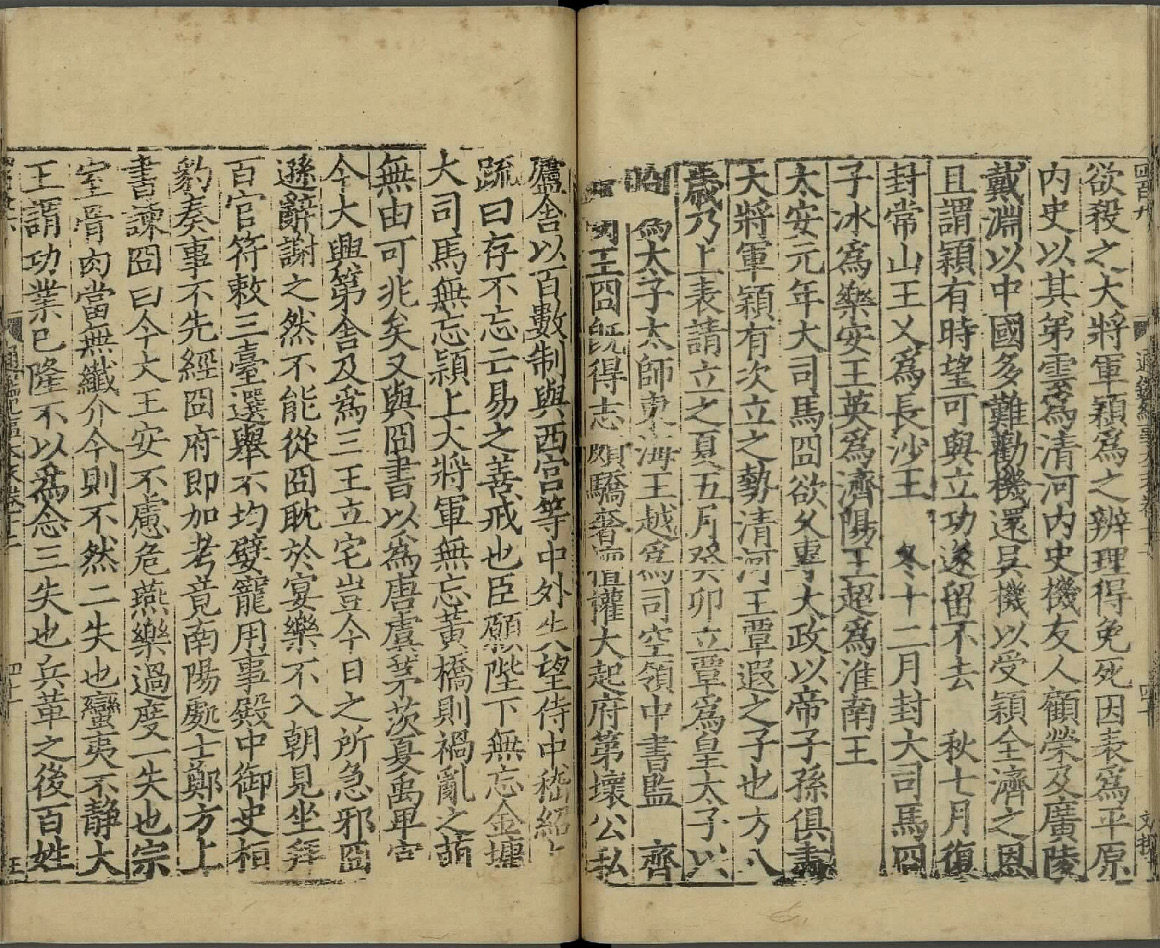 欲殺之大將軍穎爲之辨理得免死因表爲平原
内史以其弟雲爲清河内史機友人顧榮及廣陵
戴淵以中國多難勸機還吳機以受穎全濟之恩
且謂穎有時望可與立功遂留不去 秋七月復
封常山王乂爲長沙王 冬十二月封大司馬冏
子冰爲樂安王英爲濟陽王超爲淮南王
太安元年大司馬冏欲久專大政以帝子孫俱
大將軍穎有次立之勢清河王覃遐之子也方八
歲乃上表請立之夏五月癸卯立覃爲皇太子以
冏爲太子太師東海王越爲司空領中書監 齊
王冏旣得志頗驕奢擅權大起府第壞公私
廬舍以百數制與西宫等中外失望侍中嵇紹上
疏曰存不忘亡易之善戒也臣願陛下無忘金墉
大司馬無忘穎上大將軍無忘黃橋則禍亂之萌
無由可兆矣又與冏書以爲唐虞茅茨夏禹卑宫
今大興第舍及爲三王立宅豈今日之所急邪冏
遜辭謝之然不能從冏耽於宴樂不入朝見坐拜
百官符敕三臺選舉不均嬖寵用事殿中御史桓
豹奏事不先經冏府即加考竟南陽處士鄭方上
書諫冏曰今大王安不慮危燕樂過度一失也宗
室骨肉當無纖介今則不然二失也蠻夷不静大
王謂功業已隆不以爲念三失也兵革之後百姓